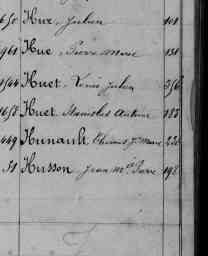 650 Hue, Julien 101
961 Hue Pierre Marie 131
1544 Huet, Louis Julien 256
1658 Huet Stanislas Antoine 188
449 Hunault, J. Marie 220
51 Husson, Jean Mie Pierre 198